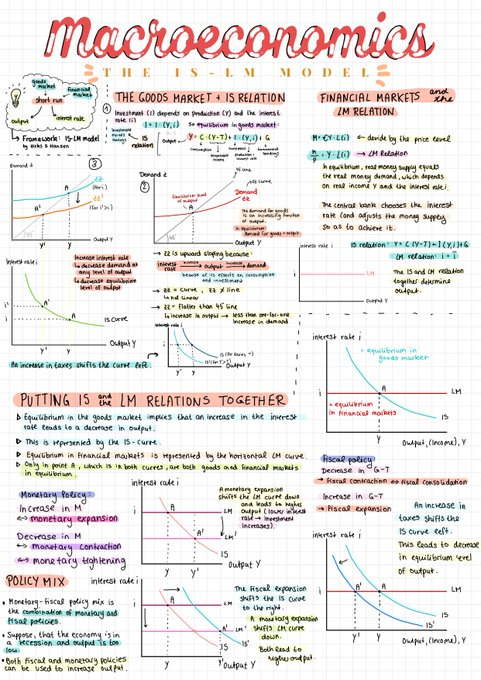 Macroeconomics
THE IS-LM MODEL
goods market
financial market
short run
output
interest rate
Framework: IS-LM model
by Hicks & Hansen
THE GOODS MARKET + IS RELATION
1
Investment (I) depends on Production (Y) and the interest
rate (i)
I = I (Y,i)
so equilibrium in goods market:
IS
relation
Y = C (Y-T) + I(Y,i) + G
3
Demand Z
ZZ
(for i)
ZZ'
(for i'>i)
A
A'
45°
Y'
Y
Output Y
Increase interest rate
↳ decrease demand at
any level of output
↳ decrease equilibrium
level of output
Interest rate, i
i'
i
A'
A
IS curve
Y'
Y
Output Y
An increase in taxes shifts the curve left
2
Demand Z
45° line
Equilibrium level
of output
Demand
ZZ
A
The demand for goods
is an increasing function
of output.
In equilibrium:
demand for goods = output
45°
Y
Output Y
→ ZZ is upward sloping because:
interest rate → output → demand
because of its effects on consumption
and investment
→ ZZ = curve, ZZ ≠ line
↳ not linear
→ ZZ = flatter than 45° line
↳ increase in output → less than one-for-one
increase in demand
interest rate i
i
IS (for taxes T)
IS' (for T'>T)
Y'
Y
Output Y
FINANCIAL MARKETS and the
LM RELATION
M = €Y · L(i) ← divide by the price level
M/P = Y · L(i) → LM Relation
In equilibrium, real money supply equals
the real money demand, which depends
on real income Y and the interest rate i.
The central bank chooses the interest
rate (and adjusts the money supply
so as to achieve it).
interest rate i
i
LM
Output Y
IS relation: Y = C (Y-T) + I(Y,i) + G
LM relation: i = ī
The IS and LM relation
together determine
output.
interest rate i
= equilibrium in
goods market
A
i
LM
= equilibrium
in financial markets
IS
Y
Output, (Income), Y
PUTTING IS and the LM RELATIONS TOGETHER
▷ Equilibrium in the goods market implies that an increase in the interest
rate leads to a decrease in output.
▷ This is represented by the IS-curve.
▷ Equilibrium in financial markets is represented by the horizontal LM curve.
▷ Only in point A, which is in both curves, are both goods and financial markets
in equilibrium.
Monetary Policy:
Increase in M
⇔ monetary expansion
Decrease in M
⇔ monetary contraction
⇔ monetary tightening
interest rate i
i
A
LM
A'
LM'
IS
Y
Y'
Output Y
A monetary expansion
shifts the LM curve down
and leads to higher
output (lower interest
rate → investment
increases).
Fiscal policy:
Decrease in G-T
→ Fiscal contraction ⇔ Fiscal consolidation
Increase in G-T
→ Fiscal expansion
An increase in
taxes shifts the
IS curve left.
This leads to decrease
in equilibrium level
of output.
interest rate i
i
A'
A
LM
IS
IS'
Y'
Y
Output, (Income), Y
POLICY MIX
• Monetary-fiscal policy mix is
the combination of monetary and
fiscal policies.
• Suppose, that the economy is in
a recession and output is too
low.
• Both fiscal and monetary policies
can be used to increase output.
interest rate i
i
A
LM
A'
LM'
IS
IS'
Y
Y'
Output Y
The fiscal expansion
shifts the IS curve
to the right.
A monetary expansion
shifts LM curve
down.
Both lead to
higher output.